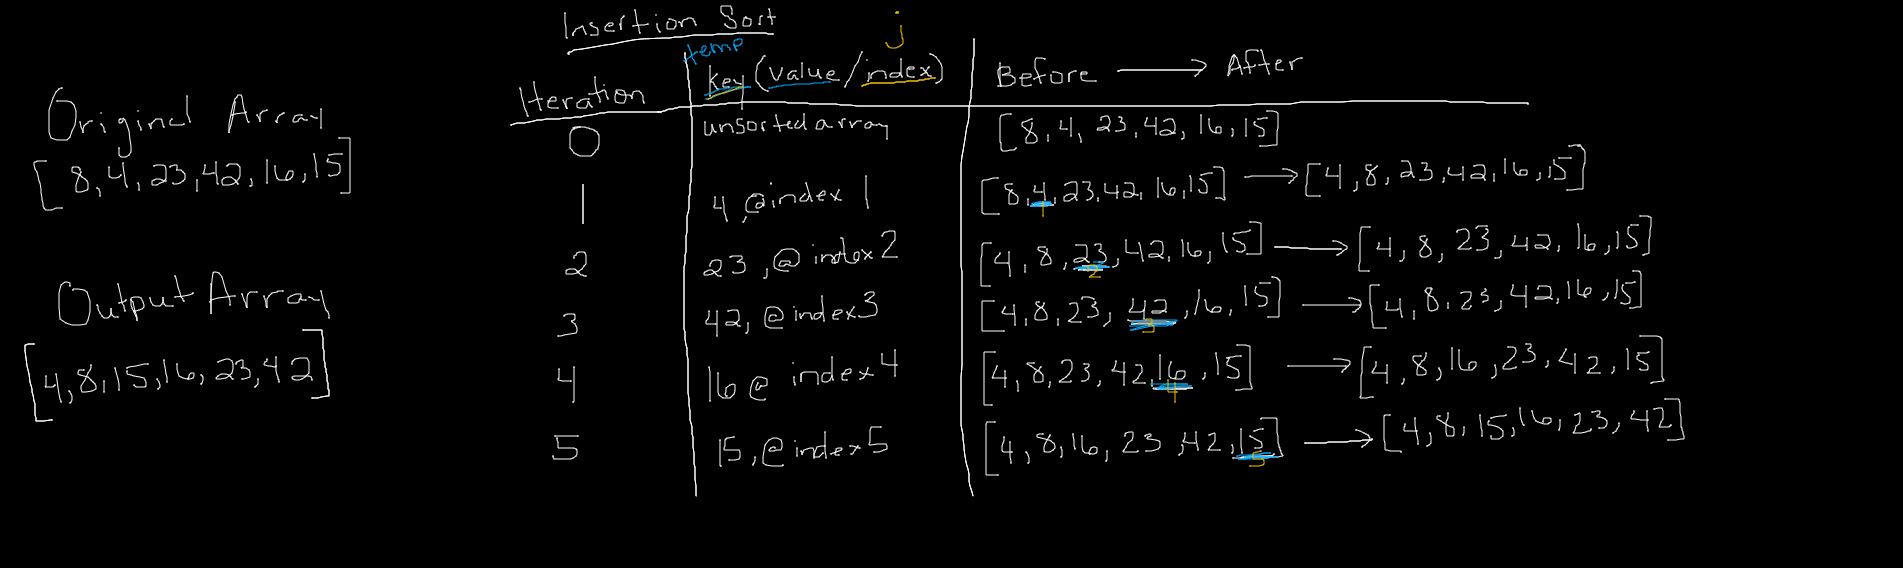 Insertion Sort
Original Array
[8,4,23,42,16,15]
Output Array
[4,8,15,16,23,42]
temp
j
Iteration key (value/index) Before → After
0 unsorted array [8,4,23,42,16,15]
1 4,@index 1 [8,4,23,42,16,15] → [4,8,23,42,16,15]
1
2 23,@index2 [4,8,23,42,16,15] → [4,8,23,42,16,15]
2
3 42,@index3 [4,8,23,42,16,15] → [4,8,23,42,16,15]
3
4 16@ index4 [4,8,23,42,16,15] → [4,8,16,23,42,15]
4
5 15,@index5 [4,8,16,23,42,15] → [4,8,15,16,23,42]
5